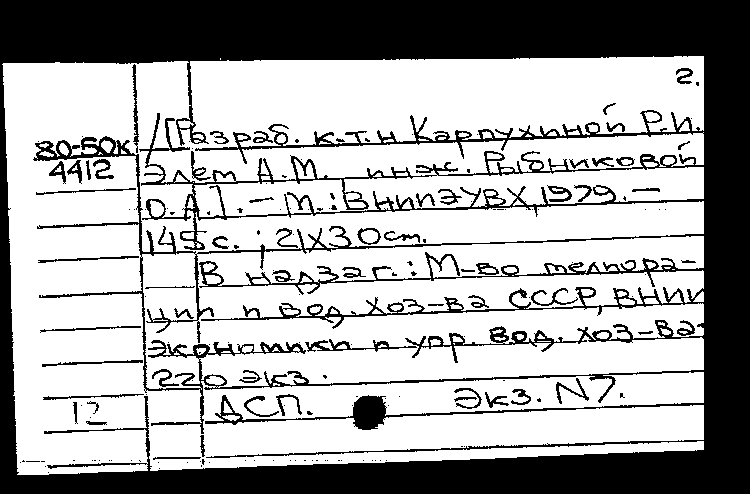 2.
80-50к /[Разраб. к.т.н Карпухиной Р.И.
4412 Элет А.М., инж. Рыбниковой
О.А.]. — М.: ВНИИЭУВХ, 1979. —
145 с. ; 21X30 cm.
В надзаг.: М-во мелиора-
ции и вод. хоз-ва СССР, ВНИИ
экономики и упр. вод. хоз-ва.
220 экз.
12 ДСП. Экз. N7.